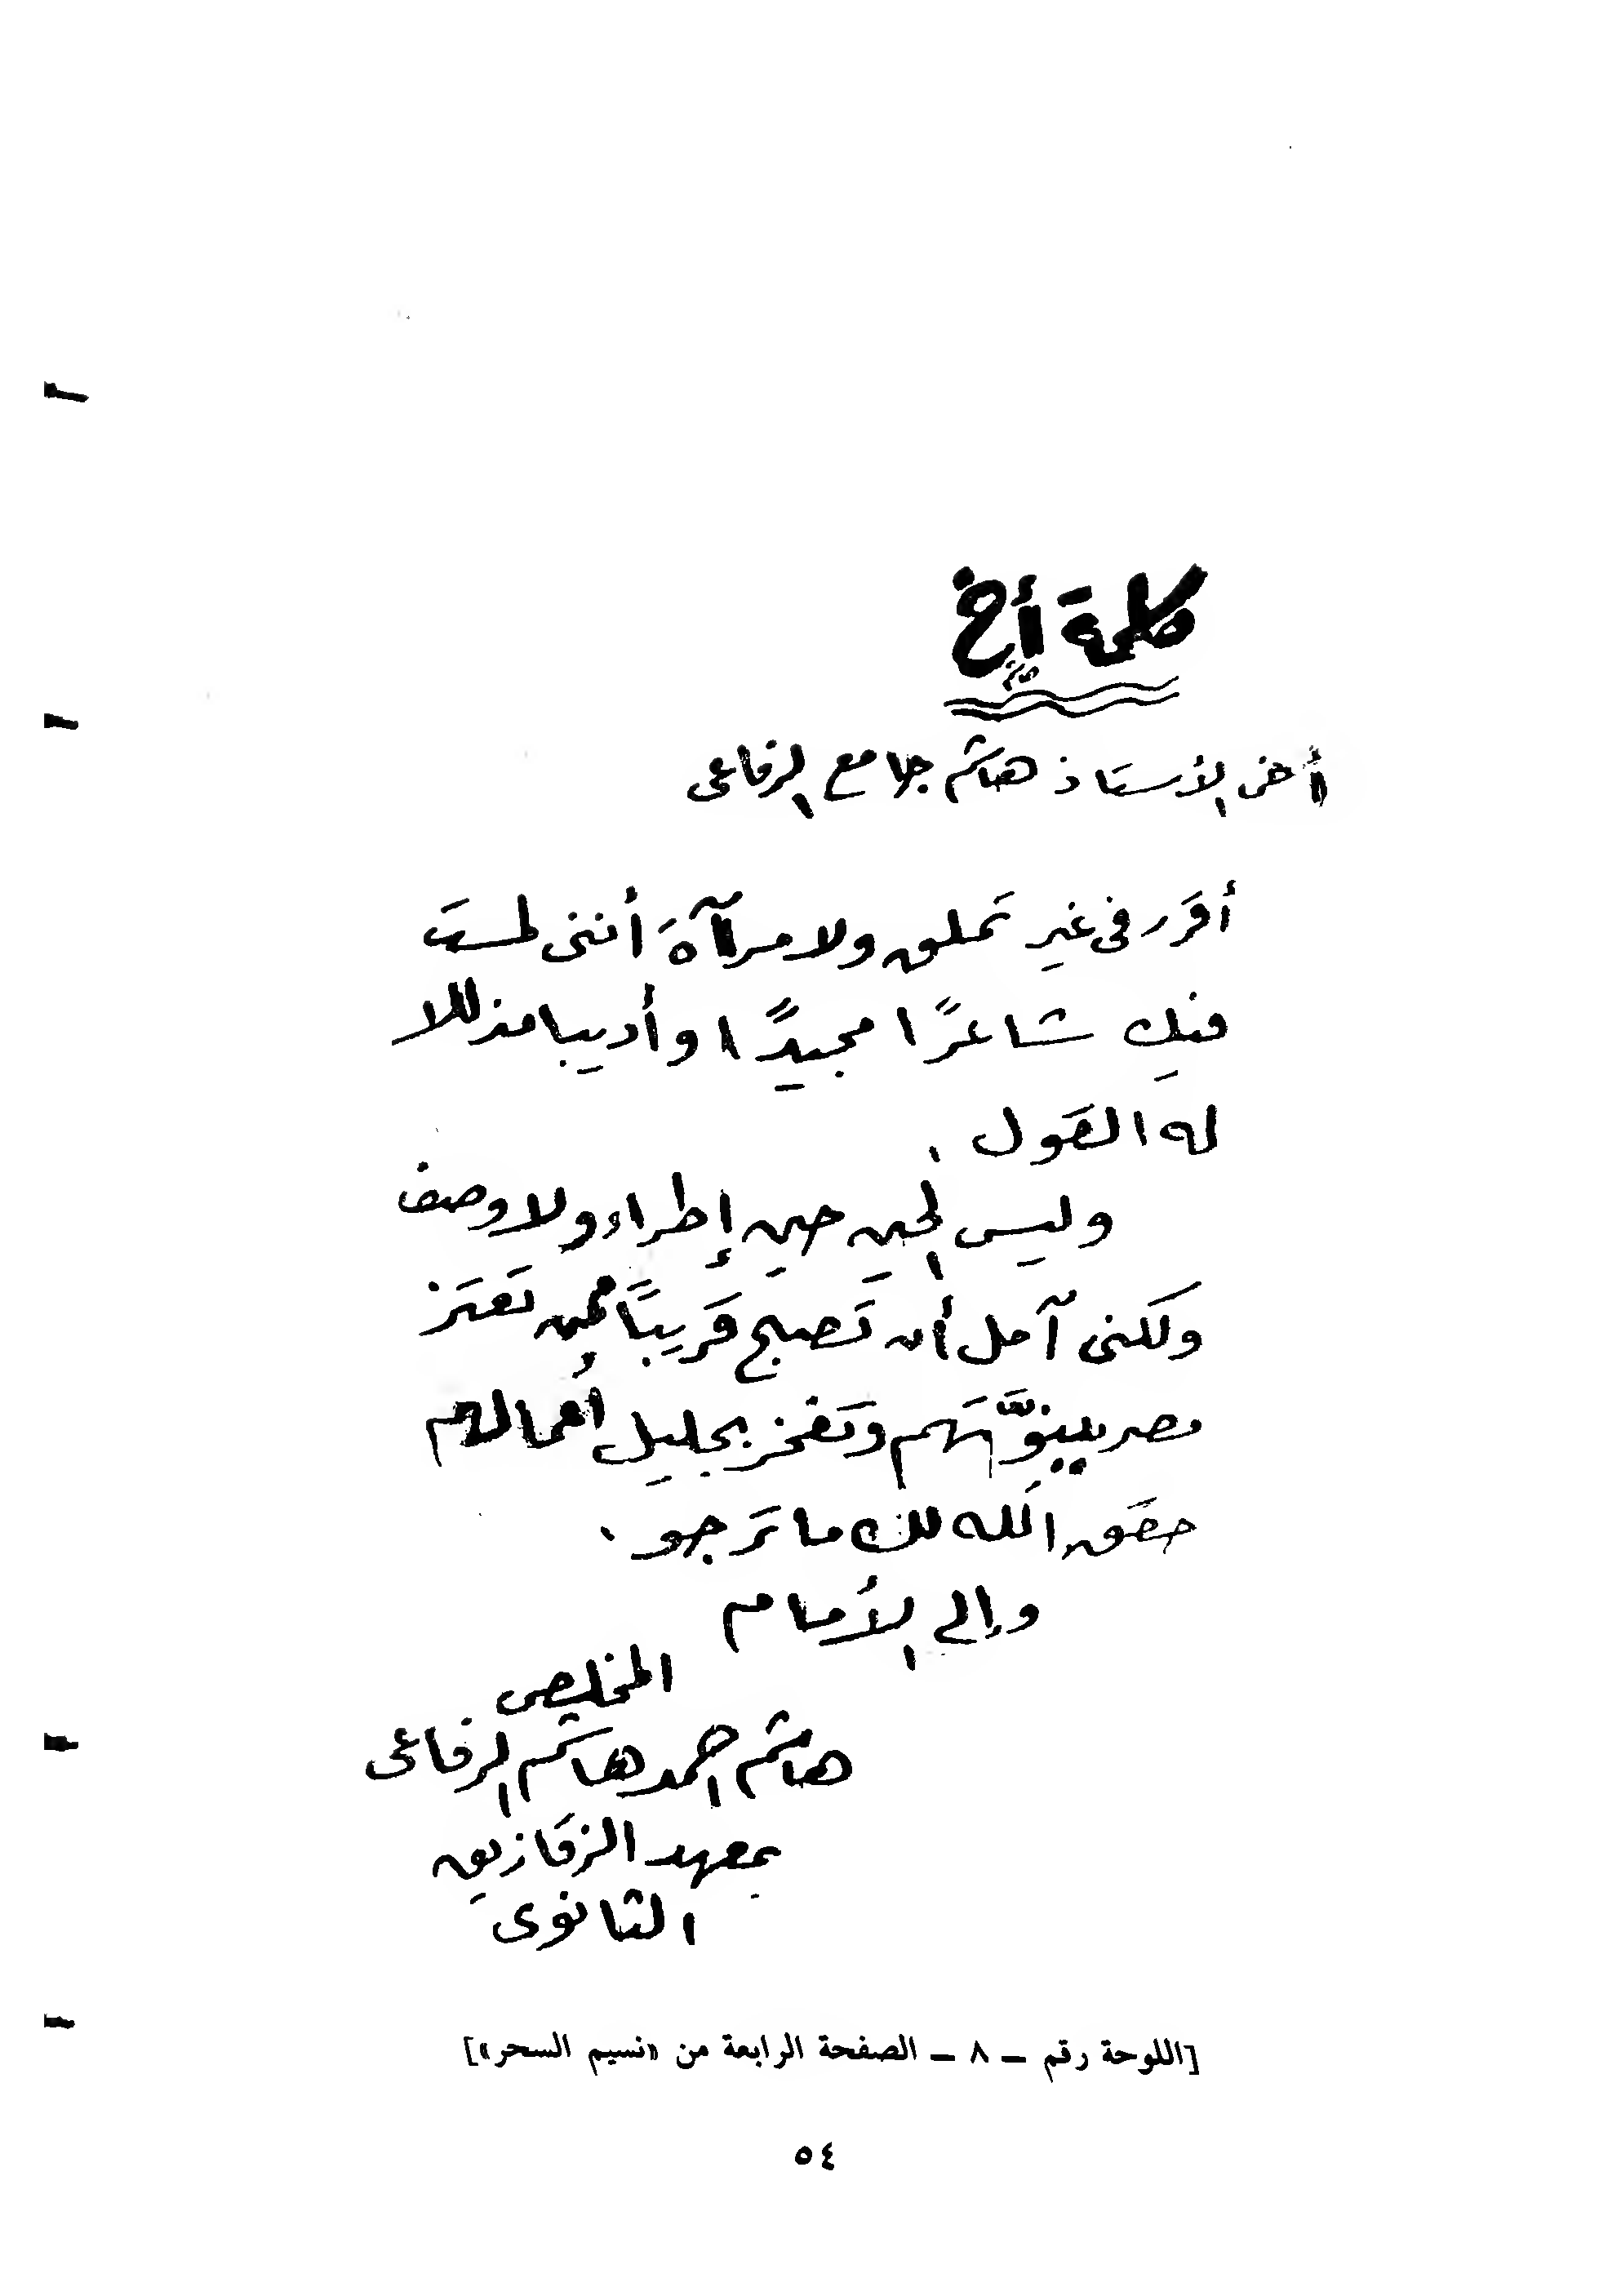 كلمة أخ
أخى الأستاذ هاشم جامع الرفاعى
أقرر فى غير تملق ولا مرآة أننى لمست
فيك شاعرًا مجيدًا وأديبا مذللا
له القول .
وليس الحين حين إطراء ولا وصف
ولكنى آمل أن تصبح قريبًا ممن تعتز
مصر بينوَّتهم وتفخر بجليل أعمالهم
حقق الله لك ما ترجو .
وإلى الأمام
المخلص
هاشم احمد هاشم الرفاعى
بمعهد الزقازيق
الثانوى
[اللوحة رقم – ٨ – الصفحة الرابعة من «نسيم السحر»]
٥٤